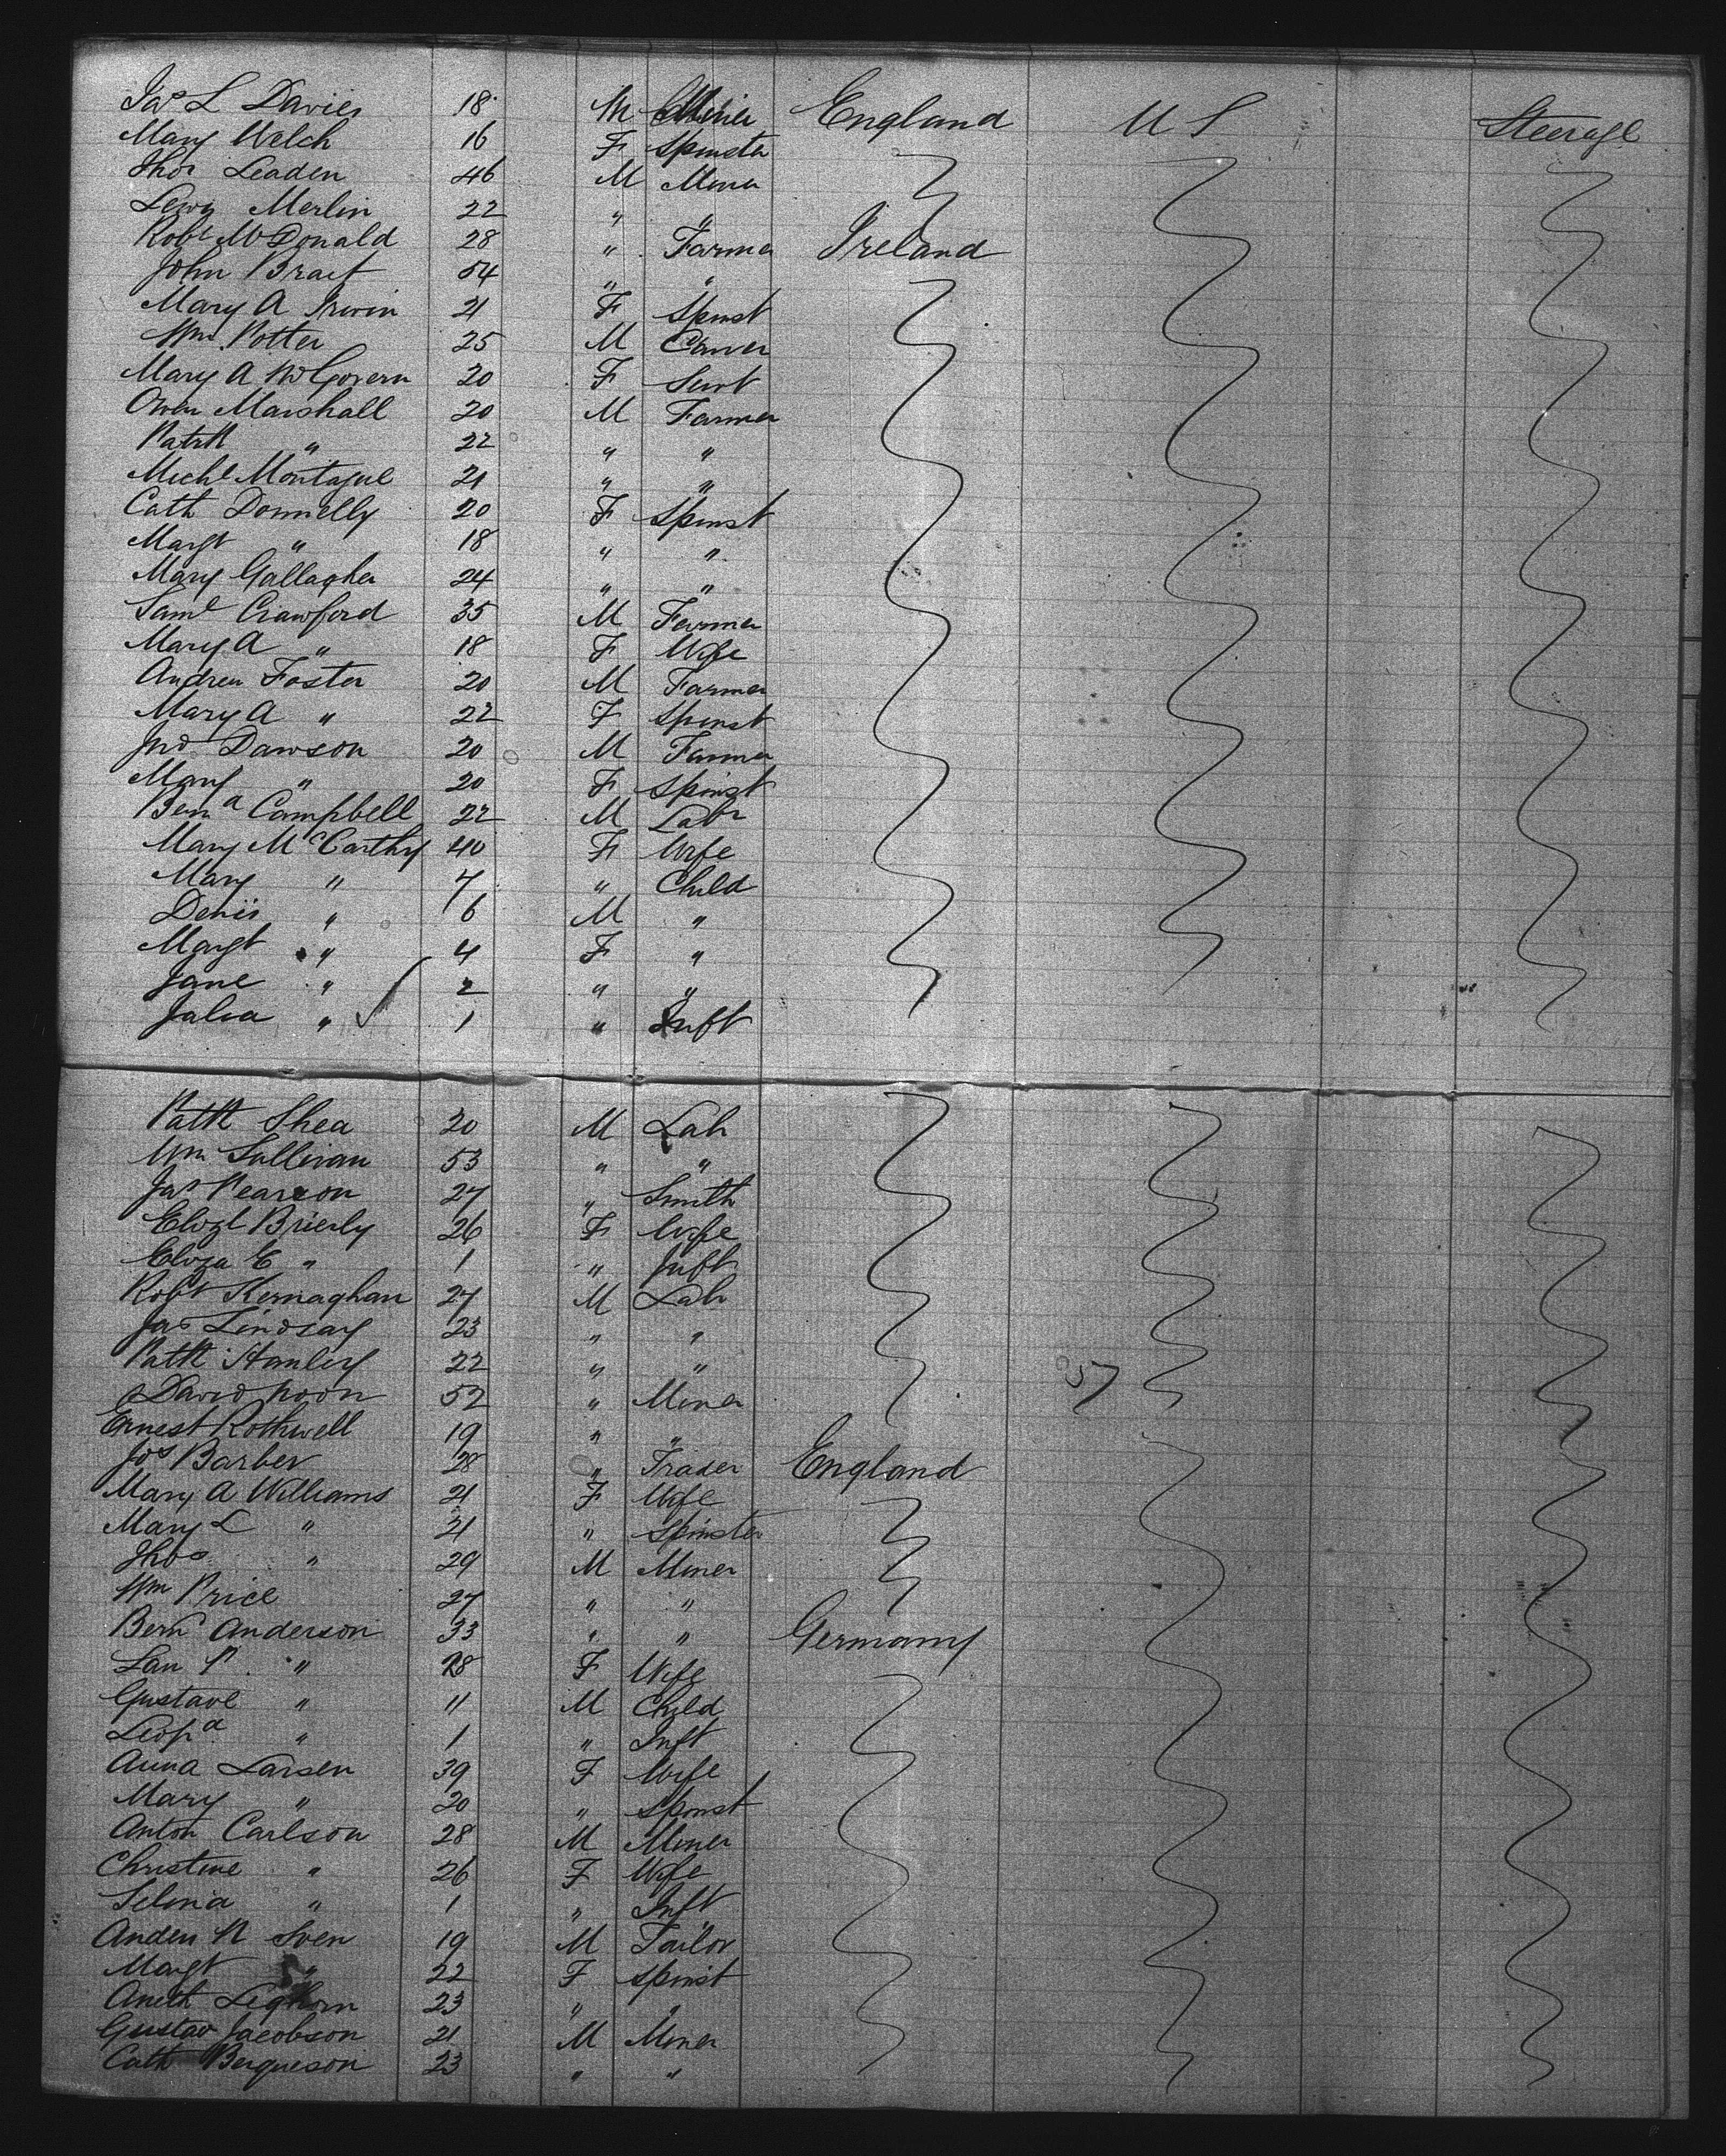 Jas L Davies 18 M Miner England U S Steerage
Mary Welch 16 F Spinster
Thos Leaden 46 M Miner
Lewis Merlin 22 " "
Robt McDonald 28 " Farmer Ireland
John Brait 54 " "
Mary A Irwin 21 F Spinst
Wm Potter 25 M Carver
Mary A McGovern 20 F Servt
Owen Marshall 20 M Farmer
Patrk " 22 " "
Michl Montague 21 " "
Cath Donnelly 20 F Spinst
Margt " 18 " "
Mary Gallagher 24 " "
Saml Crawford 35 M Farmer
Mary A " 18 F Wife
Andrew Foster 20 M Farmer
Mary A " 22 F Spinst
Jno Dawson 20 M Farmer
Mary " 20 F Spinst
Bernd Campbell 22 M Labr
Mary McCarthy 40 F Wife
Mary " 7 " Child
Denis " 6 M "
Margt " 4 F "
Jane " 2 " "
Julia " 1 " Inft
Patk Shea 20 M Lab
Wm Sullivan 53 " "
Jas Pearson 27 " Smith
Elizt Brierly 26 F Wife
Eliza E " 1 " Inft
Robt Kernaghan 27 M Lab
Jas Lindsay 23 " "
Patk Hanley 22 " "
David Moon 52 " Miner 57
Ernest Rothwell 19 " "
Jos Barber 28 " Trader England
Mary A Williams 21 F Wife
Mary L " 21 " Spinster
Thos " 29 M Miner
Wm Price 27 " "
Bern Anderson 33 " " Germany
Lau P. " 28 F Wife
Gustave " 11 M Child
Leopd " 1 " Inft
Anna Larsen 39 F Wife
Mary " 20 " Spinst
Anton Carlson 28 M Miner
Christine " 26 F Wife
Selina " 1 " Inft
Anders N Sven 19 M Tailor
Margt " 22 F Spinst
Aneth Leghorn 23 " "
Gustav Jacobson 21 M Miner
Cath Bergueson 23 " "